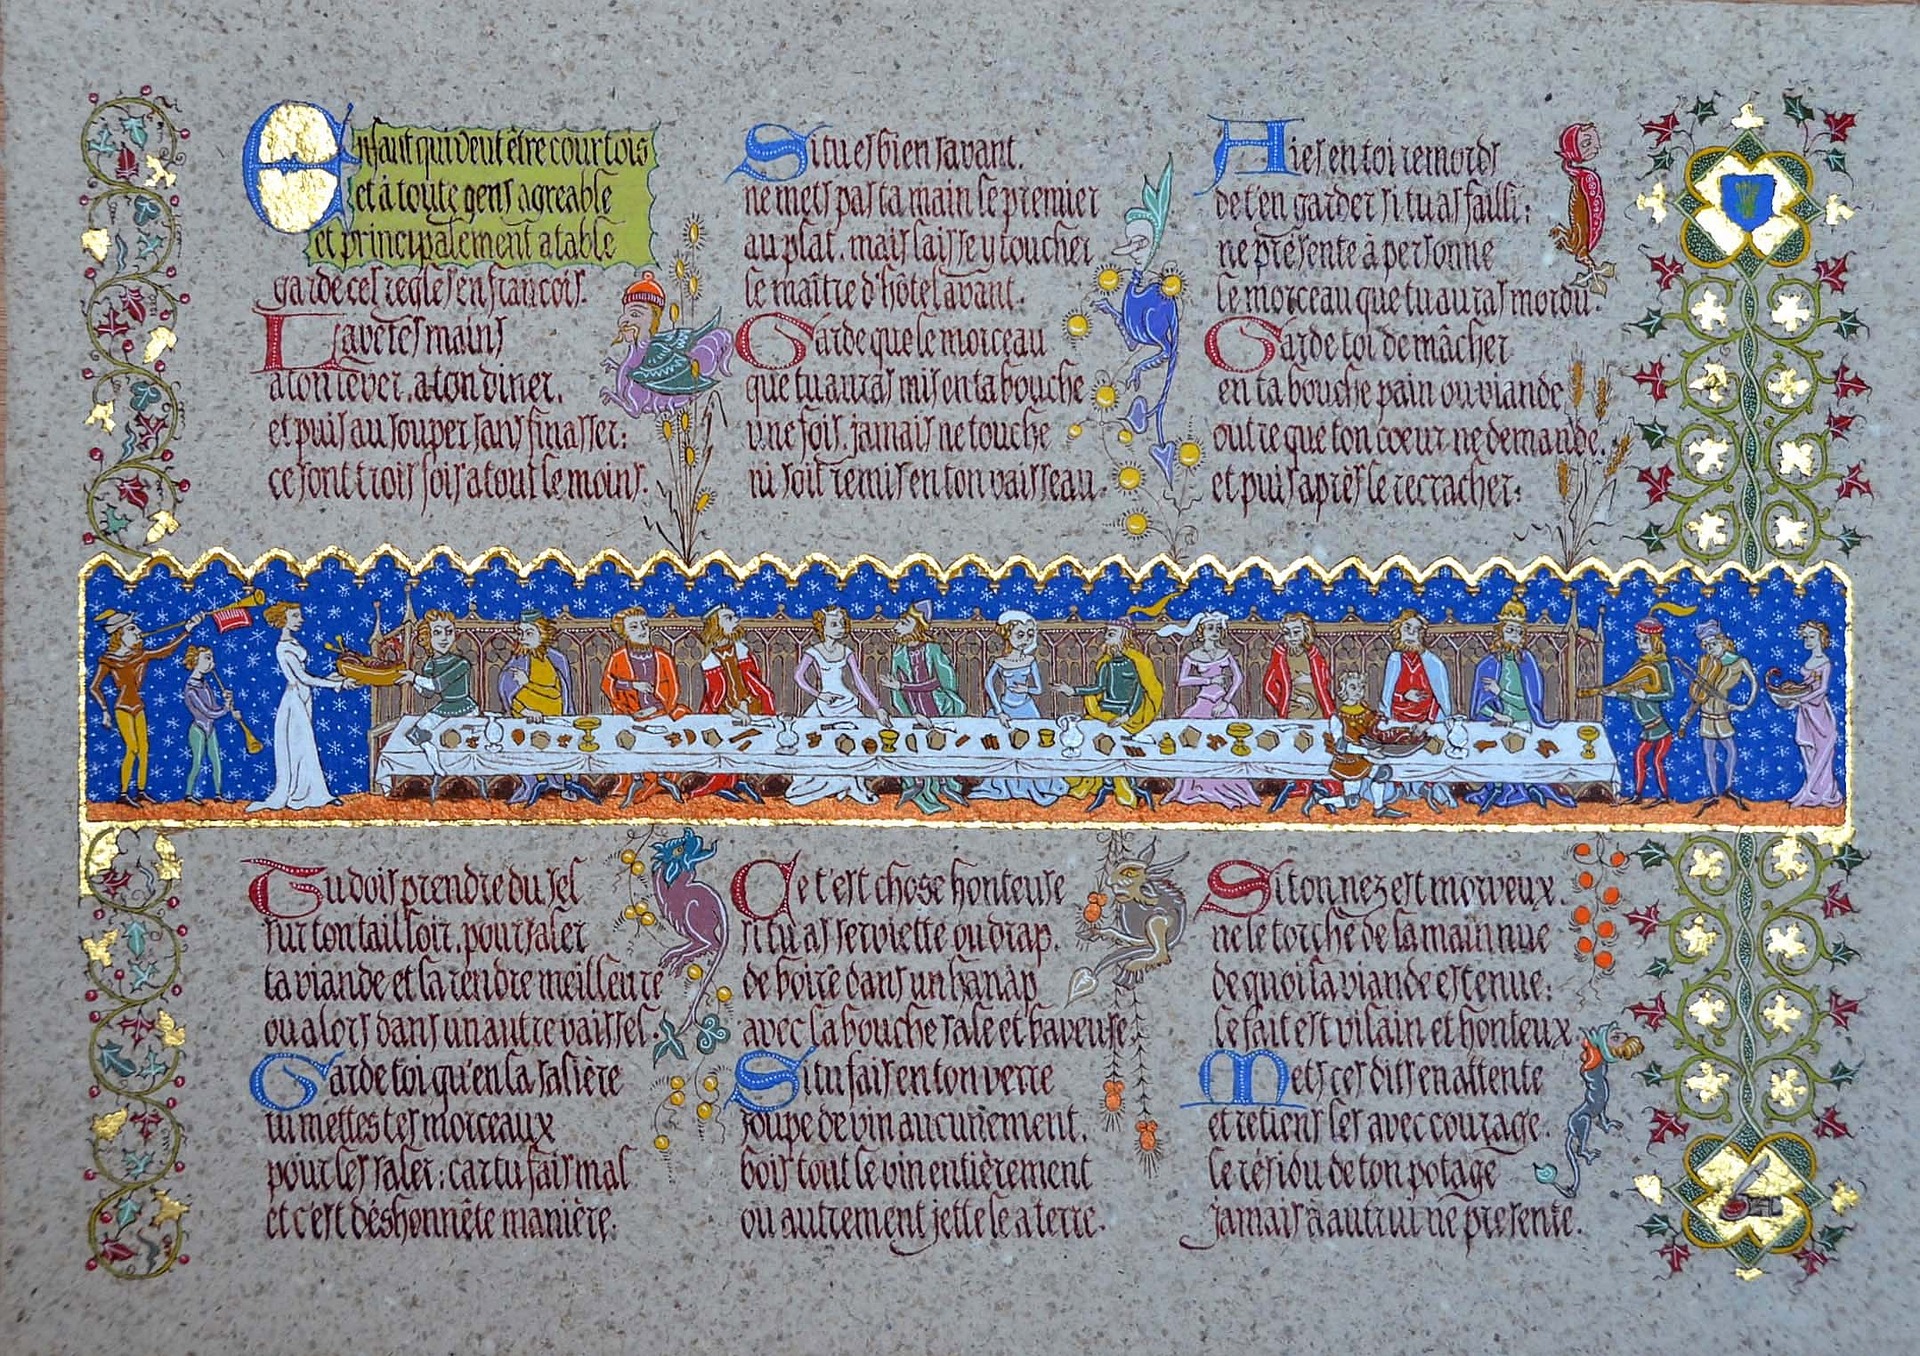 Enfant qui veut être courtois
et à toute gens agreable
et principalement a table
garde ces regles en francois.
Lave tes mains
a ton lever, a ton diner,
et puis au souper sans finasser:
ce sont trois fois a tout le moins.
Si tu es bien savant,
ne mets pas ta main le premier
au plat, mais laisse y toucher
le maître d'hôtel avant.
Garde que le morceau
que tu auras mis en ta bouche
une fois, jamais ne touche
ni soit remis en ton vaisseau.
Aies en toi remords
de t'en garder si tu as failli:
ne présente à personne
le morceau que tu auras mordu.
Garde toi de mâcher
en ta bouche pain ou viande
outre que ton coeur ne demande,
et puis après le recracher:
Tu dois prendre du sel
sur ton tailloir, pour saler
ta viande et la rendre meilleure
ou alors dans un autre vaissel.
Garde toi qu'en la salière
tu mettes tes morceaux
pour les saler: car tu fais mal
et c'est déshonnête manière:
Ce t'est chose honteuse
si tu as serviette ou drap,
de boire dans un hanap
avec la bouche sale et baveuse.
Si tu fais en ton verre
soupe de vin aucunement,
bois tout le vin entièrement
ou autrement jette le a terre.
Si ton nez est morveux,
ne le torche de la main nue
de quoi la viande est tenue:
le fait est vilain et honteux.
Mets ces dits en attente
et retiens les avec courage.
le résidu de ton potage
jamais à autrui ne présente.